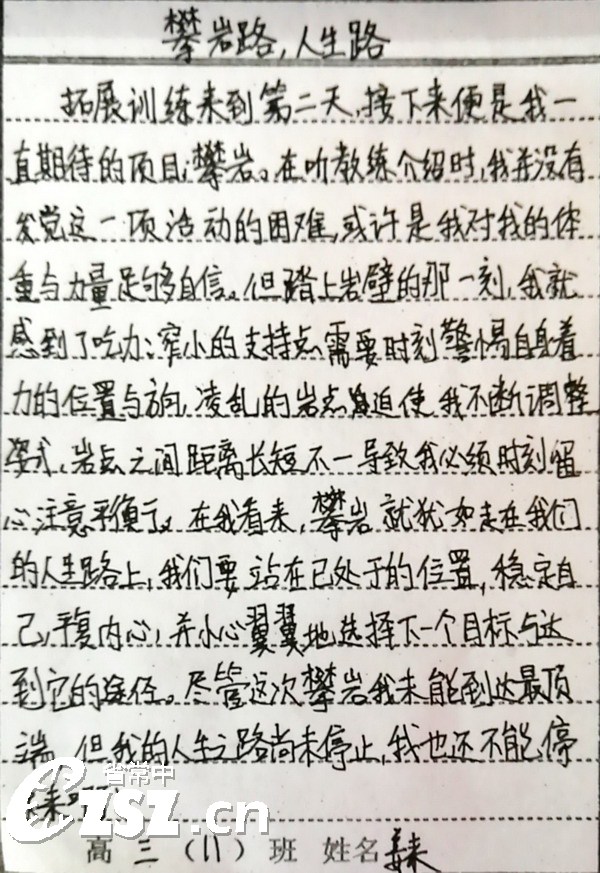 攀岩路,人生路
拓展训练来到第二天,接下来便是我一
直期待的项目,攀岩。在听教练介绍时,我并没有
发觉这一项活动的困难,或许是我对我的体
重与力量足够自信。但踏上岩壁的那一刻,我就
感到了吃力:窄小的支持点需要时刻警惕自身着
力的位置与方向,凌乱的岩点迫使我不断调整
姿式,岩点之间距离长短不一导致我必须时刻留
心注意平衡。在我看来,攀岩就犹如走在我们
的人生路上,我们要站在已处于的位置,稳定自
己,平复内心,并小心翼翼地选择下一个目标与达
到它的途径。尽管这次攀岩我未能到达最顶
端,但我的人生之路尚未停止,我也还不能停
下来
省常中
CZSZ.cn
高三(11)班 姓名